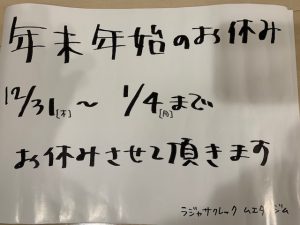 年末年始のお休み
12/31[木]〜 1/4[月]まで
お休みさせて頂きます
ラジャサクレック ムエタイジム